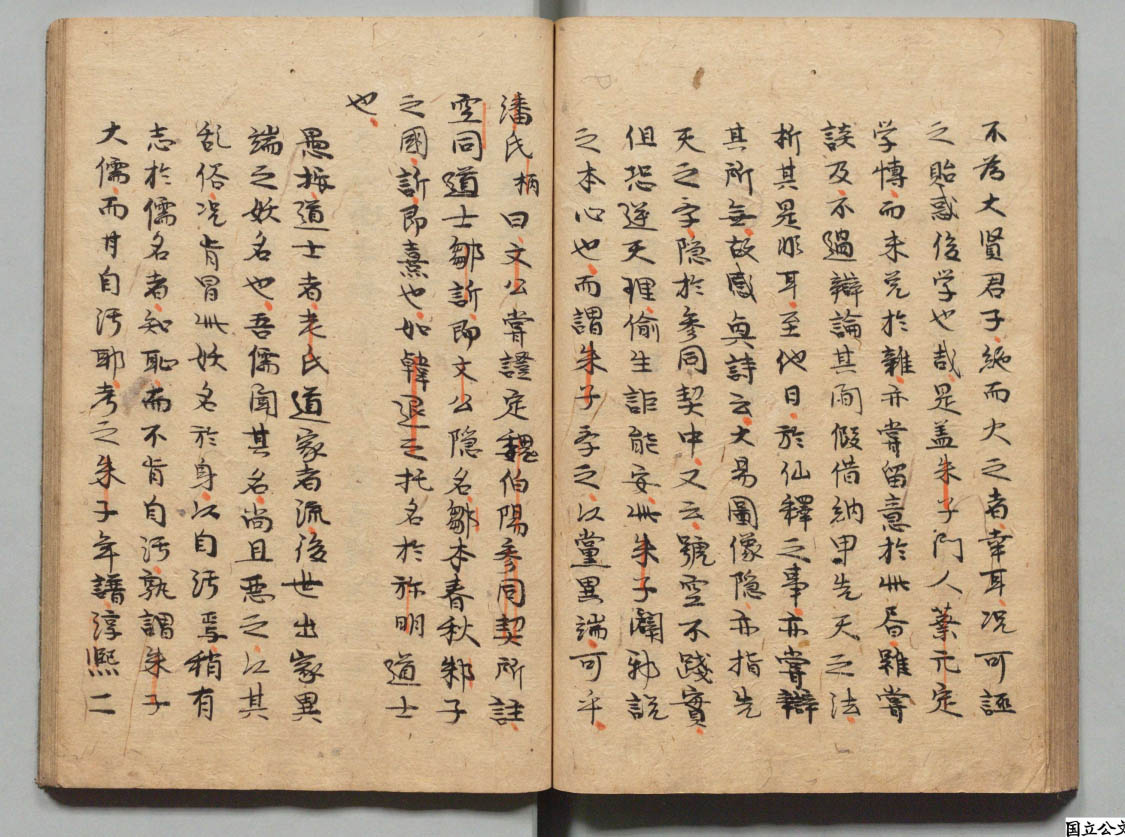 不為大賢君子絶而火之者幸耳况可誣
之貽惑後学也哉是盖朱子門人葉元定
学博而未免於雜亦嘗留意於此㫺雖嘗
談及不過辯論其兩假借納甲先天之法
折其是非耳至他日於仙釋之事亦嘗辯
其所無故感興詩云大易圖像隐亦指先
天之字隐於参同契中又云號空不踐實
但恐逆天理偷生詎能安此朱子闢邪説
之本心也而謂朱子季之以黨異端可乎
潘氏柄曰文公嘗證定魏伯陽参同契所註
空同道士鄒訢即文公隐名鄒本春秋邾子
之國訢即熹也如韓退之托名於弥明道士
也
愚按道士者老氏道家者流後世出家異
端之妖名也吾儒聞其名尚且悪之以其
乱俗况肯冒此妖名於身以自汚焉稍有
志於儒名者知恥而不肯自汚孰謂朱子
大儒而甘自汚耶考之朱子年譜淳熈二
国立公文